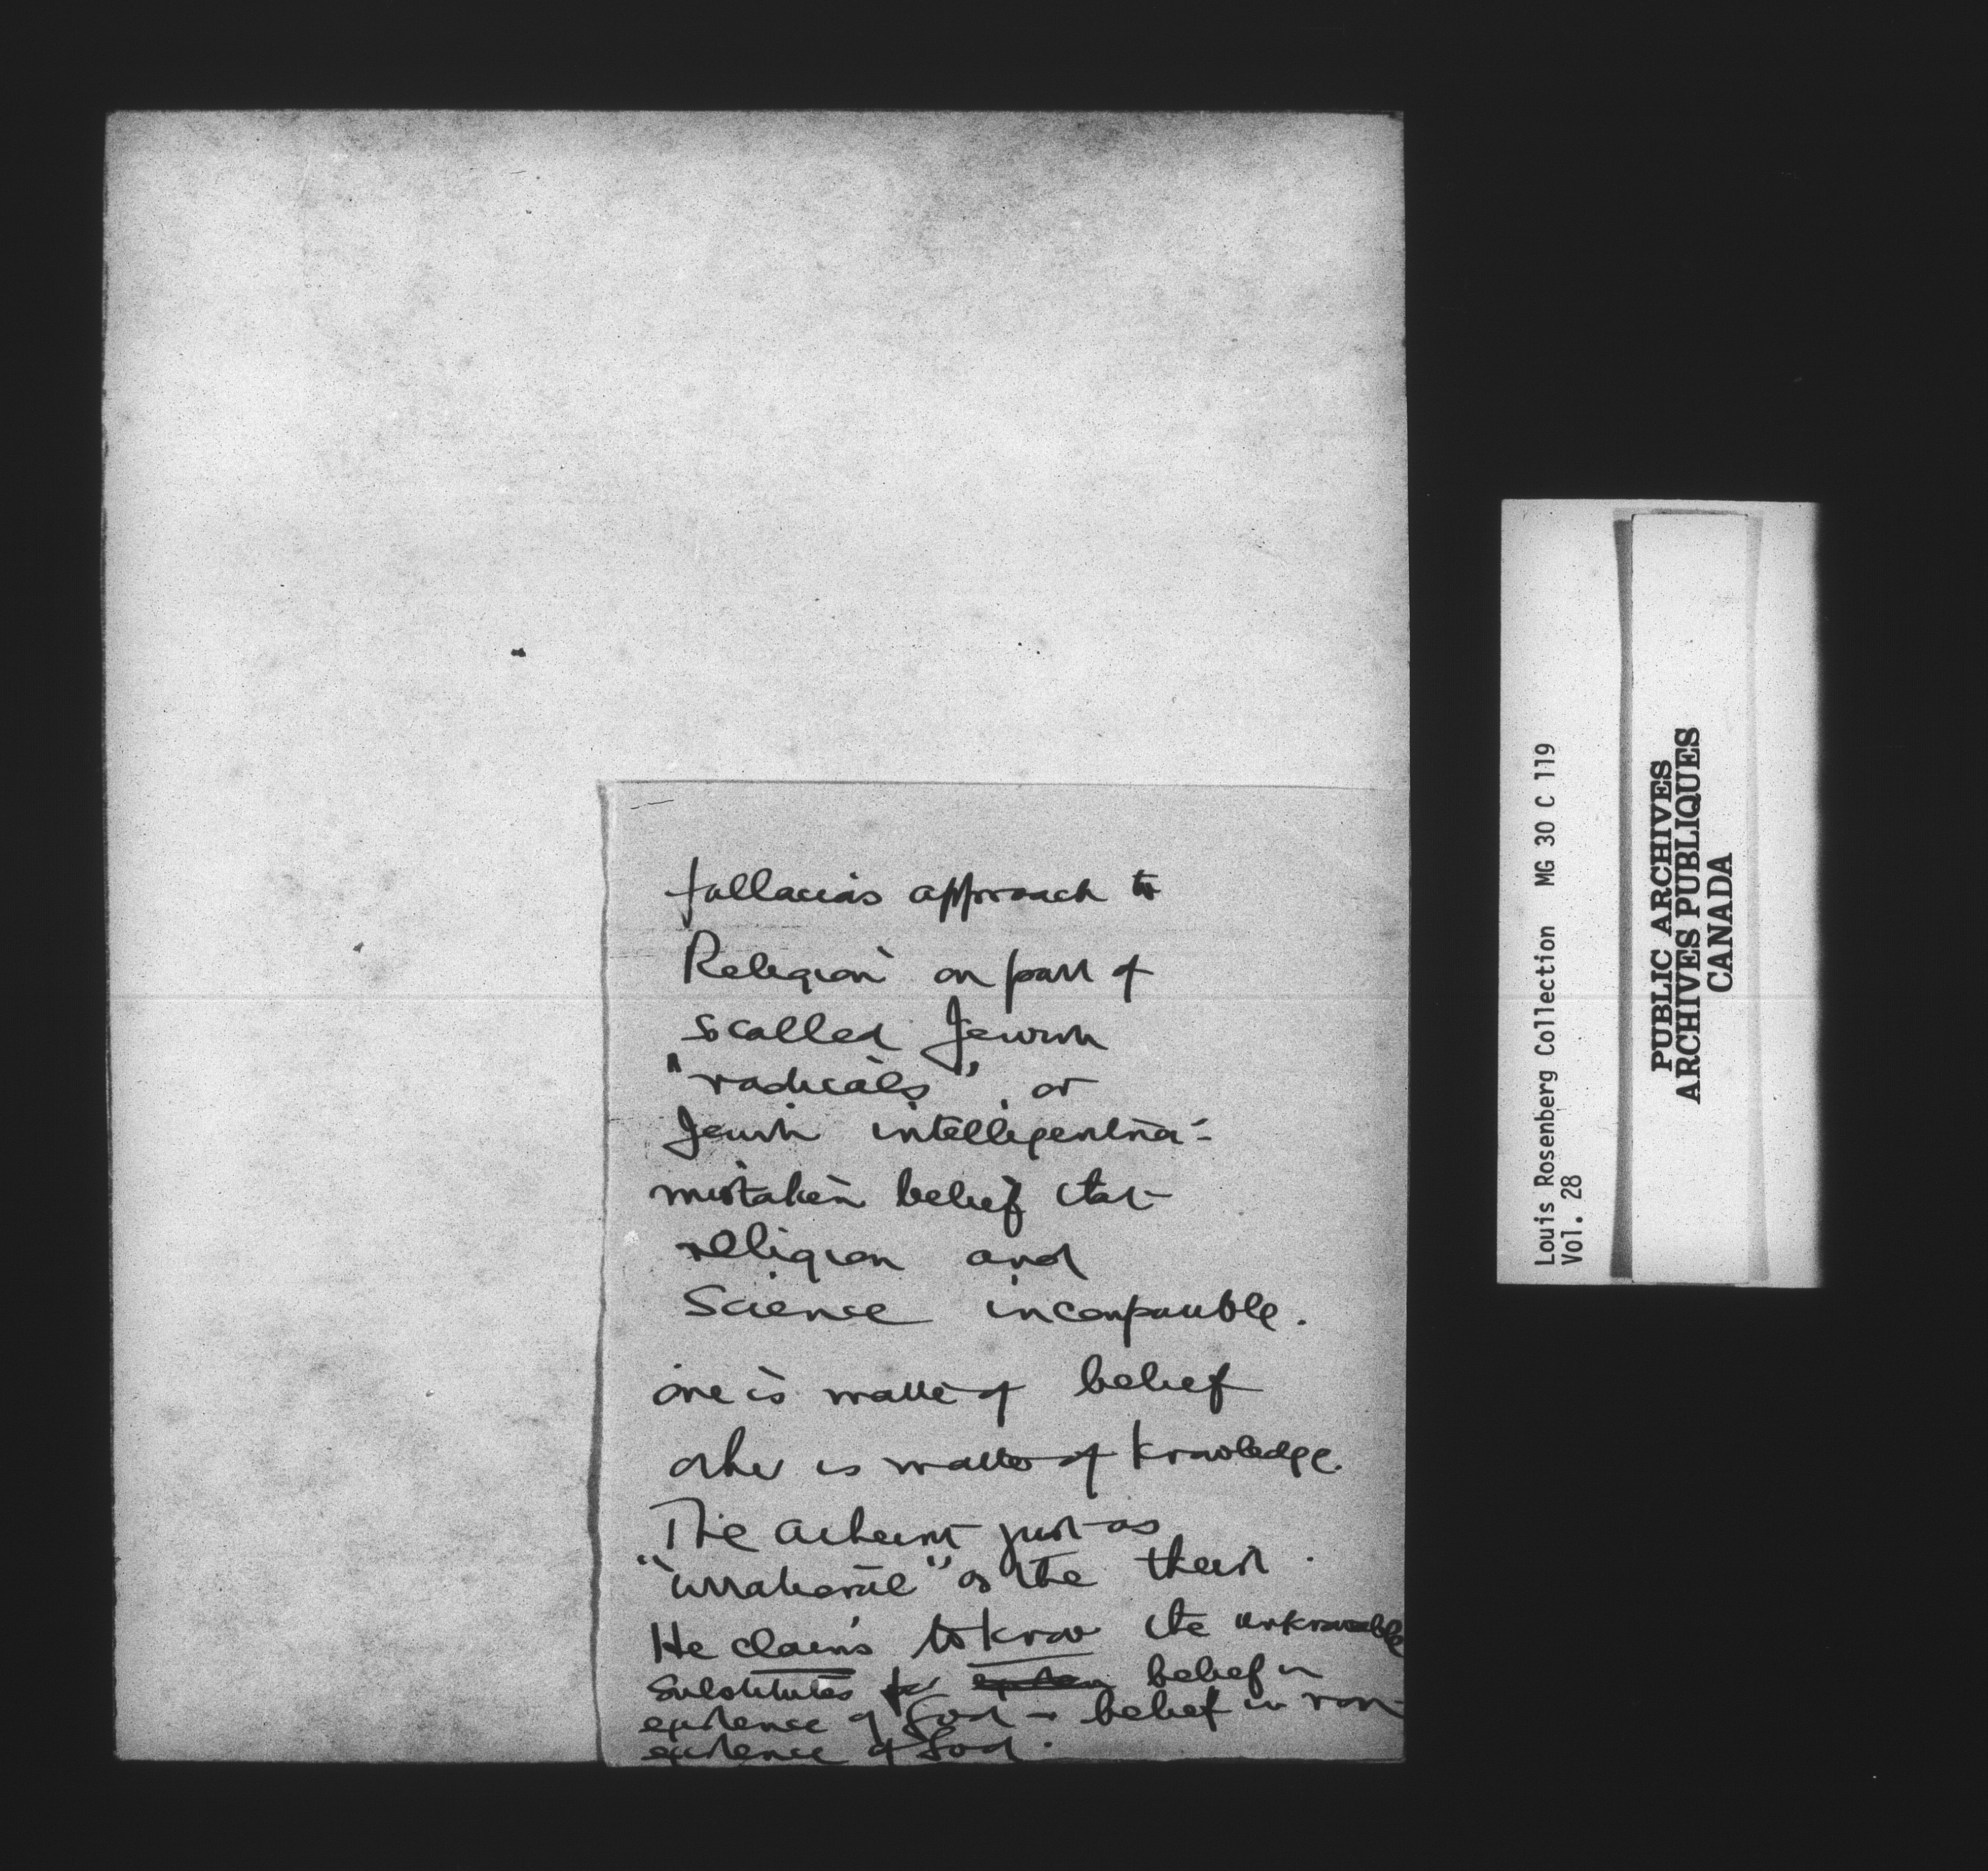 fallacious approach to
Religion on part of
so called Jewish
"radicals" or
Jewish intelligentsia -
mistaken belief that
religion and
Science incompatible.
one is matter of belief
other is matter of knowledge.
The atheist just as
"irrational" as the theist.
He claims to know the unknowable
Substitutes for belief in
existence of God - belief in non-
existence of God.
Louis Rosenberg Collection MG 30 C 119
Vol. 28
PUBLIC ARCHIVES
ARCHIVES PUBLIQUES
CANADA